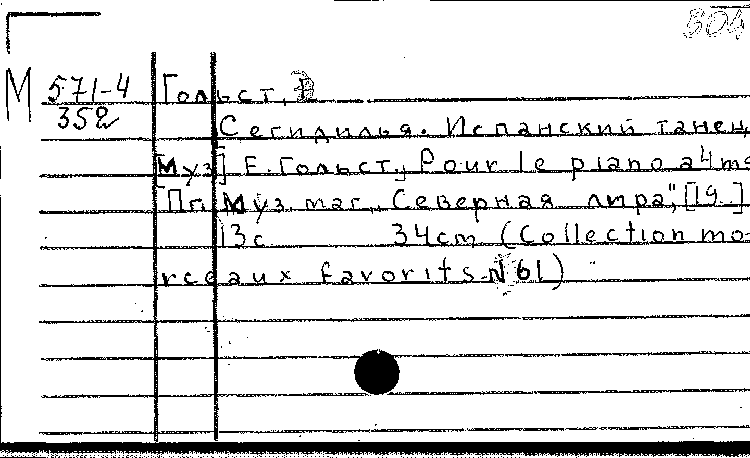 304
М 571-4 Гольст, Е
352
Сегидилья. Испанский танец
[Муз] Е. Гольст., Pour le piano a 4 ms
Пг. Муз. маг. „Северная лира", [19.]
13с 34cm (Collection mo-
rceaux favorits. N 61)